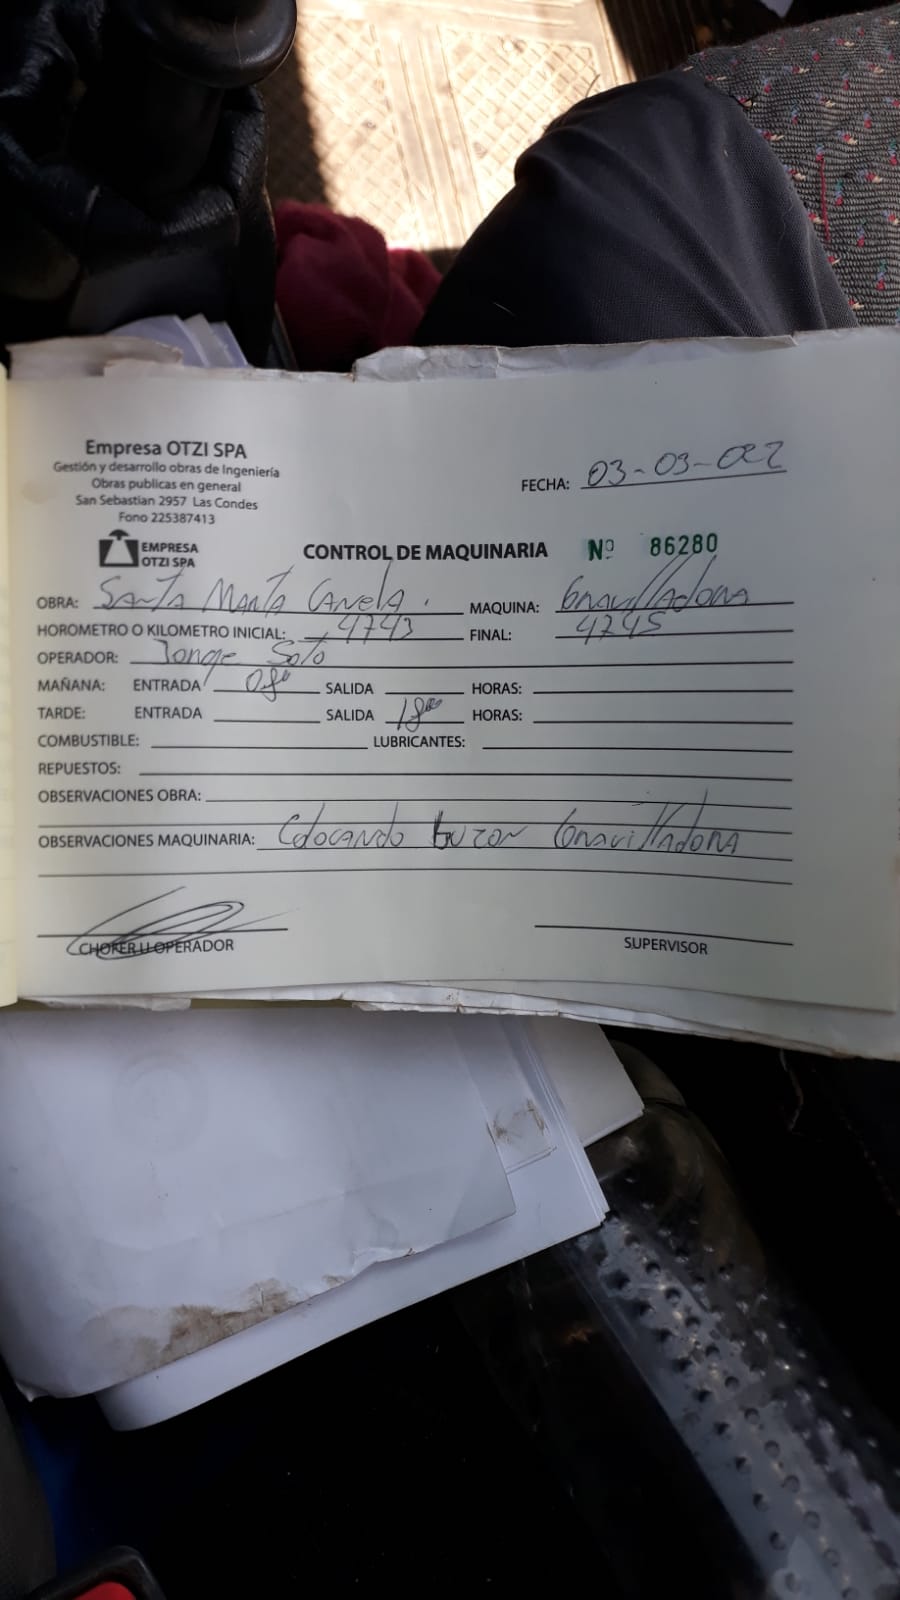 Empresa OTZI SPA
Gestión y desarrollo obras de Ingeniería
Obras publicas en general
San Sebastian 2957 Las Condes
Fono 225387413
FECHA: 03-03-022
EMPRESA
OTZI SPA
CONTROL DE MAQUINARIA Nº 86280
OBRA: Santa Marta Canela. MAQUINA: Gravilladora
HOROMETRO O KILOMETRO INICIAL: 4743 FINAL: 4745
OPERADOR: Jorge Soto
MAÑANA: ENTRADA 08⁰⁰ SALIDA HORAS:
TARDE: ENTRADA SALIDA 18⁰⁰ HORAS:
COMBUSTIBLE: LUBRICANTES:
REPUESTOS:
OBSERVACIONES OBRA:
OBSERVACIONES MAQUINARIA: Colocando buzon Gravilladora
CHOFER U OPERADOR SUPERVISOR